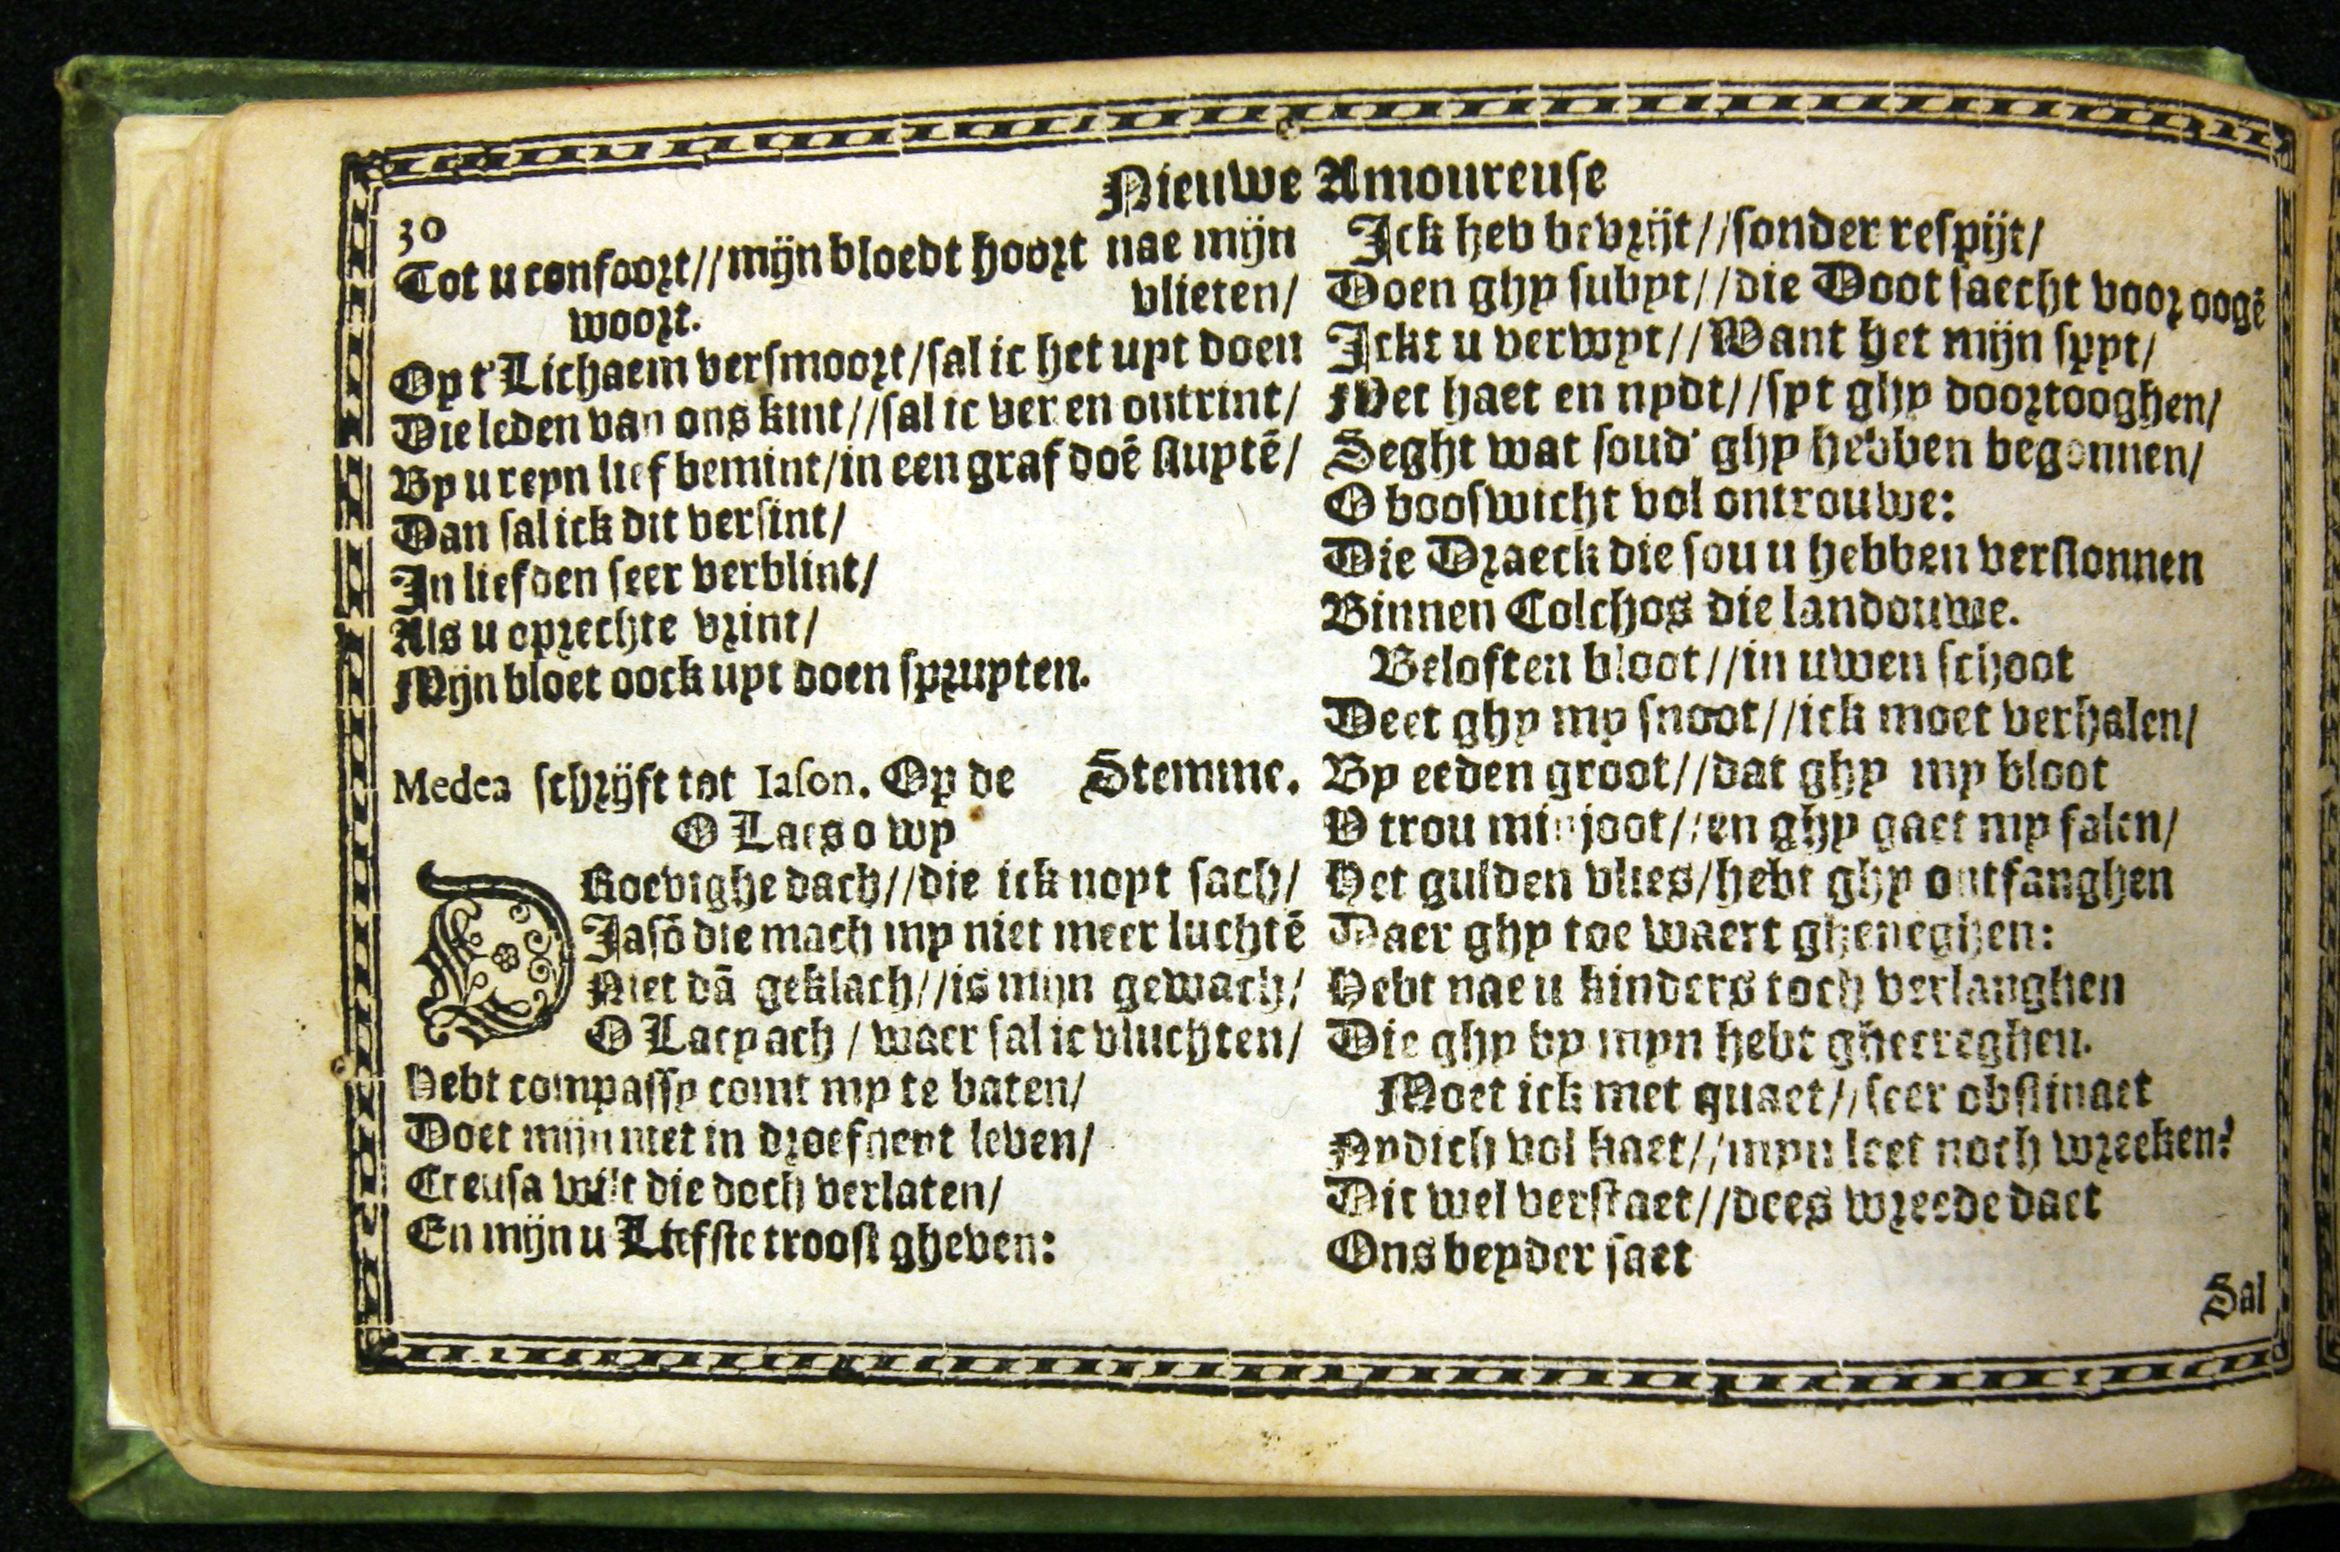 Nieuwe Amoureuse
30
Tot u confoort//mijn bloedt hoort nae mijn
woort. vlieten/
Op t' Lichaem versmoort/sal ic het uyt doen
Die leden van ons kint//sal ic ver en ontrint/
By u reyn lief bemint/in een graf doē sluytē/
Dan sal ick dit versint/
In liefden seer verblint/
Als u oprechte vrint/
Mijn bloet oock uyt doen spruyten.
Medea schrijft tot Iason. Op de Stemme.
O Laes o wy
DRoevighe dach//die ick noyt sach/
Jasō die mach my niet meer luchtē
Niet dā geklach//is mijn gewach/
O Lacy ach / waer sal ic vluchten/
Hebt compassy comt my te baten/
Doet mijn niet in droefheyt leven/
Creusa wilt die doch verlaten/
En mijn u Liefste troost gheven:
Ick heb bevrijt//sonder respijt/
Doen ghy subyt//die Doot saecht voor oogē
Ickt u verwyt//Want het mijn spyt/
Met haet en nydt//syt ghy doortooghen/
Seght wat soud' ghy hebben begonnen/
O booswicht vol ontrouwe:
Die Draeck die sou u hebben verslonnen
Binnen Colchos die landouwe.
Beloften bloot//in uwen schoot
Deet ghy my snoot//ick moet verhalen/
By eeden groot//dat ghy my bloot
V trou mijn joot//en ghy gaet my falen/
Het gulden vlies/hebt ghy ontfanghen
Daer ghy toe waert gheneghen:
Hebt nae u kinders toch verlanghen
Die ghy by myn hebt ghecreghen.
Moet ick met quaet//seer obstinaet
Nydich vol haet//myn leet noch wreeken?
Dit wel verstaet//dees wreede daet
Ons beyder saet
Sal